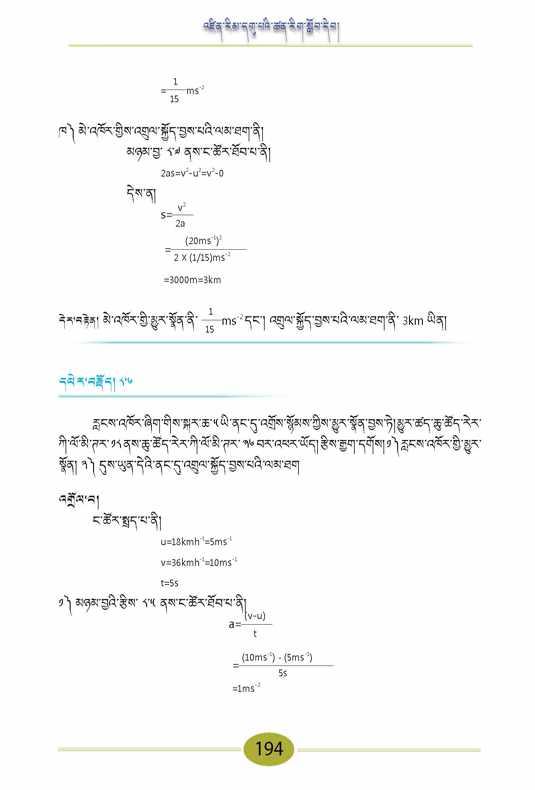 འཛིན་རིམ་དགུ་པའི་ཚན་རིག་སློབ་དེབ།
= 1/15 ms⁻²
ཁ༽ མེ་འཁོར་གྱིས་འགྲུལ་སྐྱོད་བྱས་པའི་ལམ་ཐག་ནི།
མཉམ་བྱ་ ༨.༧ ནས་ང་ཚོར་ཐོབ་པ་ནི།
2as=v²-u²=v²-0
དེས་ན།
s= v²/2a
= (20ms⁻¹)² / 2 X (1/15)ms⁻²
=3000m=3km
དེར་བརྟེན། མེ་འཁོར་གྱི་མྱུར་སྣོན་ནི་ 1/15 ms⁻² དང་། འགྲུལ་སྐྱོད་བྱས་པའི་ལམ་ཐག་ནི་ 3km ཡིན།
དཔེར་བརྗོད། ༨.༦
རླངས་འཁོར་ཞིག་གིས་སྐར་ཆ་ ༥ ཡི་ནང་དུ་འགྲོས་སྙོམས་ཀྱིས་མྱུར་སྣོན་བྱས་ཏེ།མྱུར་ཚད་ཆུ་ཚོད་རེར་
ཀི་ལོ་མི་ཊར་ ༡༨ ནས་ཆུ་ཚོད་རེར་ཀི་ལོ་མི་ཊར་ ༣༦ བར་འཕར་ཡོད། རྩིས་རྒྱག་དགོས།༡༽ རླངས་འཁོར་གྱི་མྱུར་
སྣོན། ༢༽ དུས་ཡུན་དེའི་ནང་དུ་འགྲུལ་སྐྱོད་བྱས་པའི་ལམ་ཐག
འགྲོལ་བ།
ང་ཚོར་སྤྲད་པ་ནི།
u=18kmh⁻¹=5ms⁻¹
v=36kmh⁻¹=10ms⁻¹
t=5s
༡༽ མཉམ་བྱའི་རྩིས་ ༨.༥ ནས་ང་ཚོར་ཐོབ་པ་ནི།
a= (v-u)/t
= (10ms⁻¹) - (5ms⁻¹) / 5s
=1ms⁻²
194